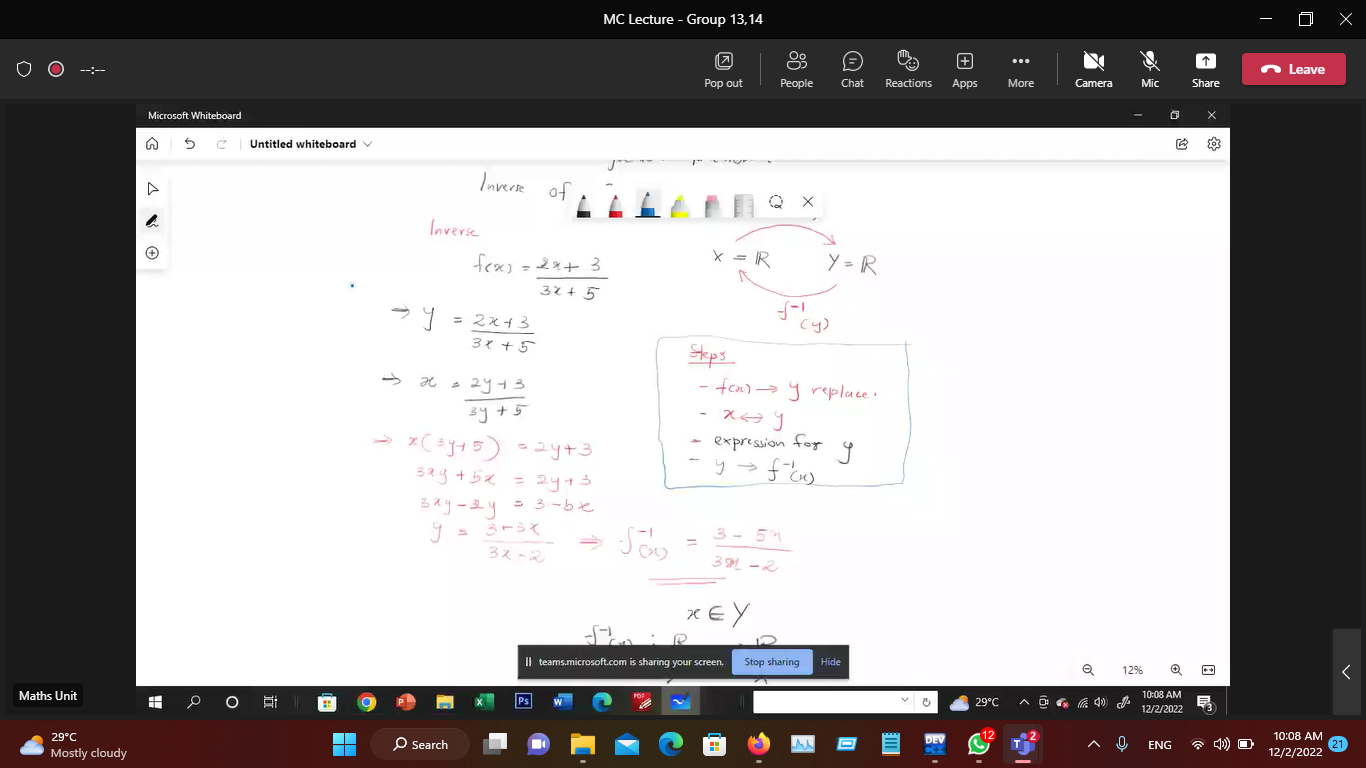 MC Lecture - Group 13,14
--:--
Pop out
People
Chat
Reactions
Apps
More
Camera
Mic
Share
Leave
Microsoft Whiteboard
Untitled whiteboard
Inverse of
Inverse
f(x) = 2x + 3
3x + 5
x = ℝ y = ℝ
f⁻¹(y)
→ y = 2x+3
3x + 5
→ x = 2y+3
3y + 5
→ x(3y+5) = 2y+3
3xy + 5x = 2y+3
3xy - 2y = 3-5x
3x-2
Steps
- f(x) → y replace.
- x ↔ y
- expression for y
- y → f⁻¹(x)
⇒ f⁻¹(x) = 3 - 5x
3x - 2
x ∈ Y
f⁻¹(x) : ℝ → ℝ
teams.microsoft.com is sharing your screen.
Stop sharing
Hide
12%
Maths Unit
29°C
10:08 AM
12/2/2022
3
29°C
Mostly cloudy
Search
DEV
12
2
ENG
10:08 AM
12/2/2022
21